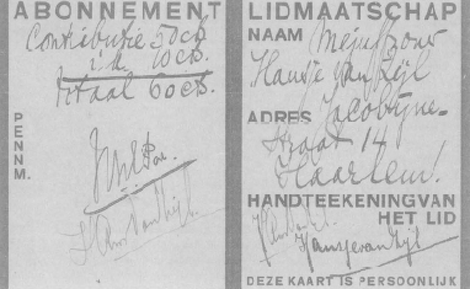 ABONNEMENT
Contributie 50 cts
i.d. 10 cts.
totaal 60 cts.
PENNM.
LIDMAATSCHAP
NAAM Mejuffrouw
Hansje van Zijl
ADRES Jacobijne-
straat 14
Haarlem!
HANDTEEKENING VAN
HET LID
Hansje van Zijl
DEZE KAART IS PERSOONLIJK